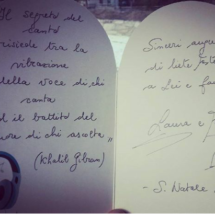 Il segreto del
canto
risiede tra la
vibrazione
della voce di chi
canta
ed il battito del
cuore di chi ascolta"
(Khalil Gibran)
Sinceri auguri
di liete feste
a Lei e
Laura e
- S. Natale